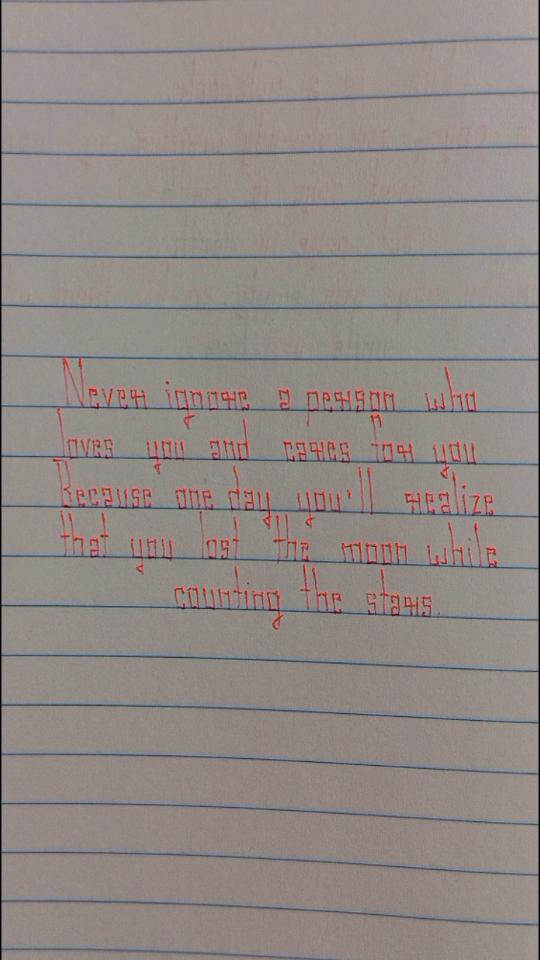 Never ignore a person who
loves you and cares for you
Because one day you'll realize
that you lost the moon while
counting the stars.